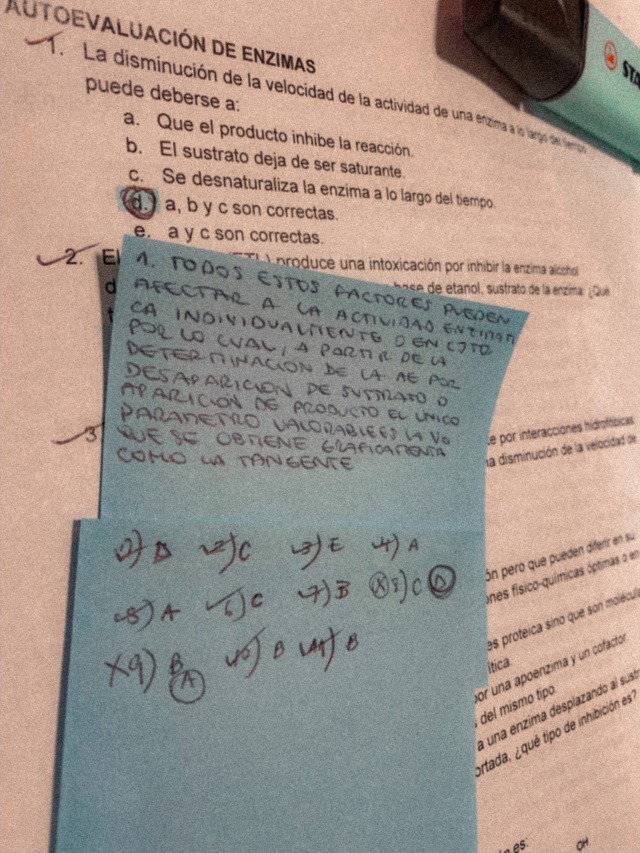 AUTOEVALUACIÓN DE ENZIMAS
STA
1. La disminución de la velocidad de la actividad de una enzima a lo largo del tiempo
puede deberse a:
a. Que el producto inhibe la reacción.
b. El sustrato deja de ser saturante.
c. Se desnaturaliza la enzima a lo largo del tiempo.
d. a, b y c son correctas.
e. a y c son correctas.
2. El produce una intoxicación por inhibir la enzima alcohol
d base de etanol, sustrato de la enzima. ¿Qué
1. TODOS ESTOS FACTORES PUEDEN
AFECTAR A LA ACTIVIDAD ENZIMÁTI
CA INDIVIDUALMENTE O EN CJTO
POR LO CUAL, A PARTIR DE LA
DETERMINACIÓN DE LA AE POR
DESAPARICIÓN DE SUSTRATO O
APARICIÓN DE PRODUCTO EL ÚNICO
PARAMETRO VALORABLE ES LA V0
QUE SE OBTIENE GRAFICAMENTE
COMO LA TANGENTE
3
e por interacciones hidrofóbicas.
la disminución de la velocidad de
1) D 2) C 3) E 4) A
5) A 6) C 7) B X 8) C D
X 9) B A 10) B 11) B
ón pero que pueden diferir en su
nes físico-químicas óptimas o en
es proteica sino que son molécula
ítica.
por una apoenzima y un cofactor.
del mismo tipo.
a una enzima desplazando al sustr
ortada, ¿qué tipo de inhibición es?
es:
OH